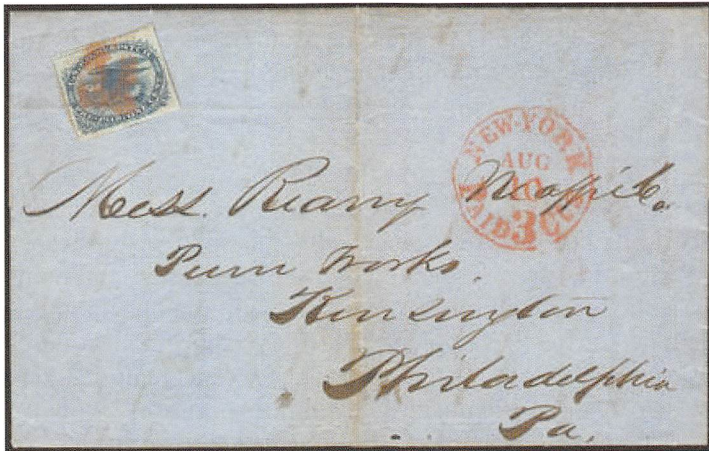 NEW-YORK
AUG
10
PAID 3 CTS
Mess. Reany Neafie & Co.
Penn Works.
Kensington
Philadelphia
Pa.